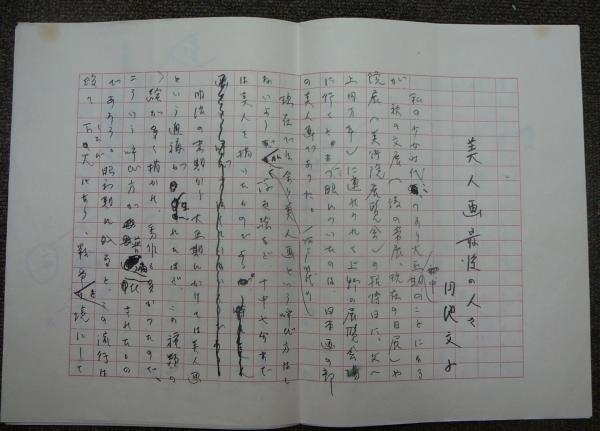 美人画最後の人々
円地文子
私の少女時代、つまり大正期のことになる
が秋の文展（後の帝展、現在の日展）や
院展（美術院展覧会）の招待日に、父（
上田万年）に連れられて上野の展覧会場
に行くと、まづ眼にいたのは日本画の部
の美人画であった。
現在では余り美人画という呼び方はし
ないよう だが 絵 など 十中七八まで
は美人を描いたもの
明治の末期から大正期にかけては美人画
という通称が 生れたほど、この種類の
絵が多く描かれ、秀作も多かったので、
こういう呼び方が 普遍化 されたもの
であろう。昭和期に入ると、この流行は
段々 下火になり、戦争を境にして